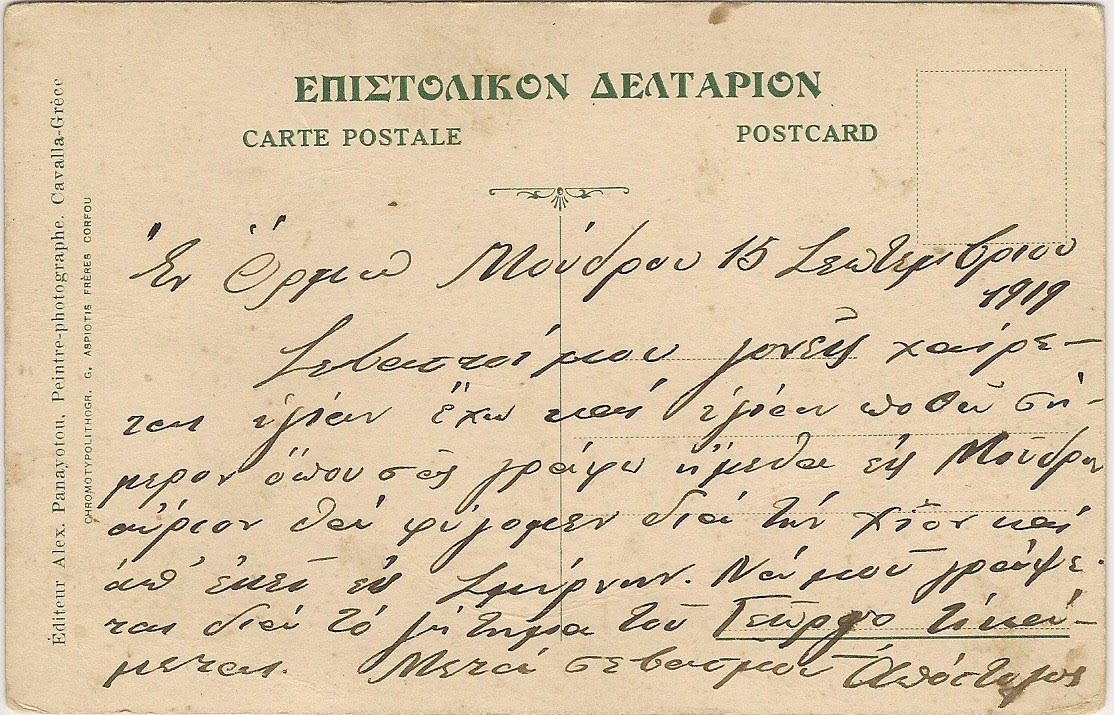 ΕΠΙΣΤΟΛΙΚΟΝ ΔΕΛΤΑΡΙΟΝ
CARTE POSTALE
POSTCARD
Éditeur Alex. Panayotou, Peintre-photographe. Cavalla-Grèce
CHROMOTYPOLITHOGR. G. ASPIOTIS FRÈRES CORFOU
Ἐν Ὅρμω Μούδρου 15 Σεπτεμβριου
1919
Σεβαστοί μου γονεῖς χαίρε-
ται ὑγίαν ἔχω καί ὑγίαν ποθῶ σή-
μερον ὅπου σᾶς γράφω ἤμεθα εἰς Μοῦδρον
αὔριον θά φύγομεν διά τήν Χῖον καί
ἀπ' ἐκεῖ εἰς Σμύρνην. Νά μοῦ γράψε-
ται διά τό ζήτημα τοῦ Γεώργο τί κάι-
μεται. Μετά σεβασμοῦ Ἀπόστολος